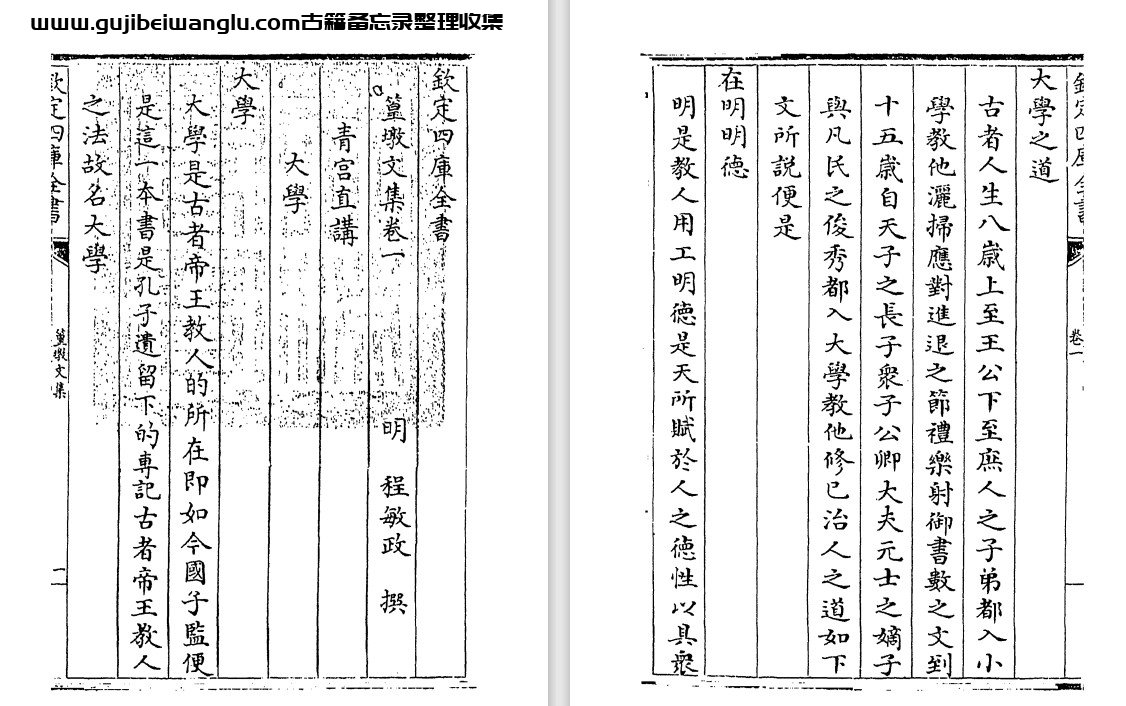 www.gujibeiwanglu.com古籍备忘录整理收集
欽定四庫全書
篁墩文集卷一
明 程敏政 撰
青宫直講
大學
大學
大學是古者帝王教人的所在即如今國子監便
是這一本書是孔子遺留下的專記古者帝王教人
之法故名大學
欽定四庫全書
篁墩文集
一
欽定四庫全書
卷一
大學之道
古者人生八嵗上至王公下至庶人之子弟都入小
學教他灑掃應對進退之節禮樂射御書數之文到
十五嵗自天子之長子衆子公卿大夫元士之嫡子
與凡民之俊秀都入大學教他修已治人之道如下
文所説便是
在明明德
明是教人用工明德是天所賦於人之德性以具衆